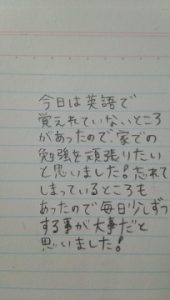 今日は英語で
覚えれていないところ
があったので、家での
勉強を頑張りたい
と思いました!忘れて
しまっているところも
あったので毎日少しずつ
する事が大事だと
思いました!